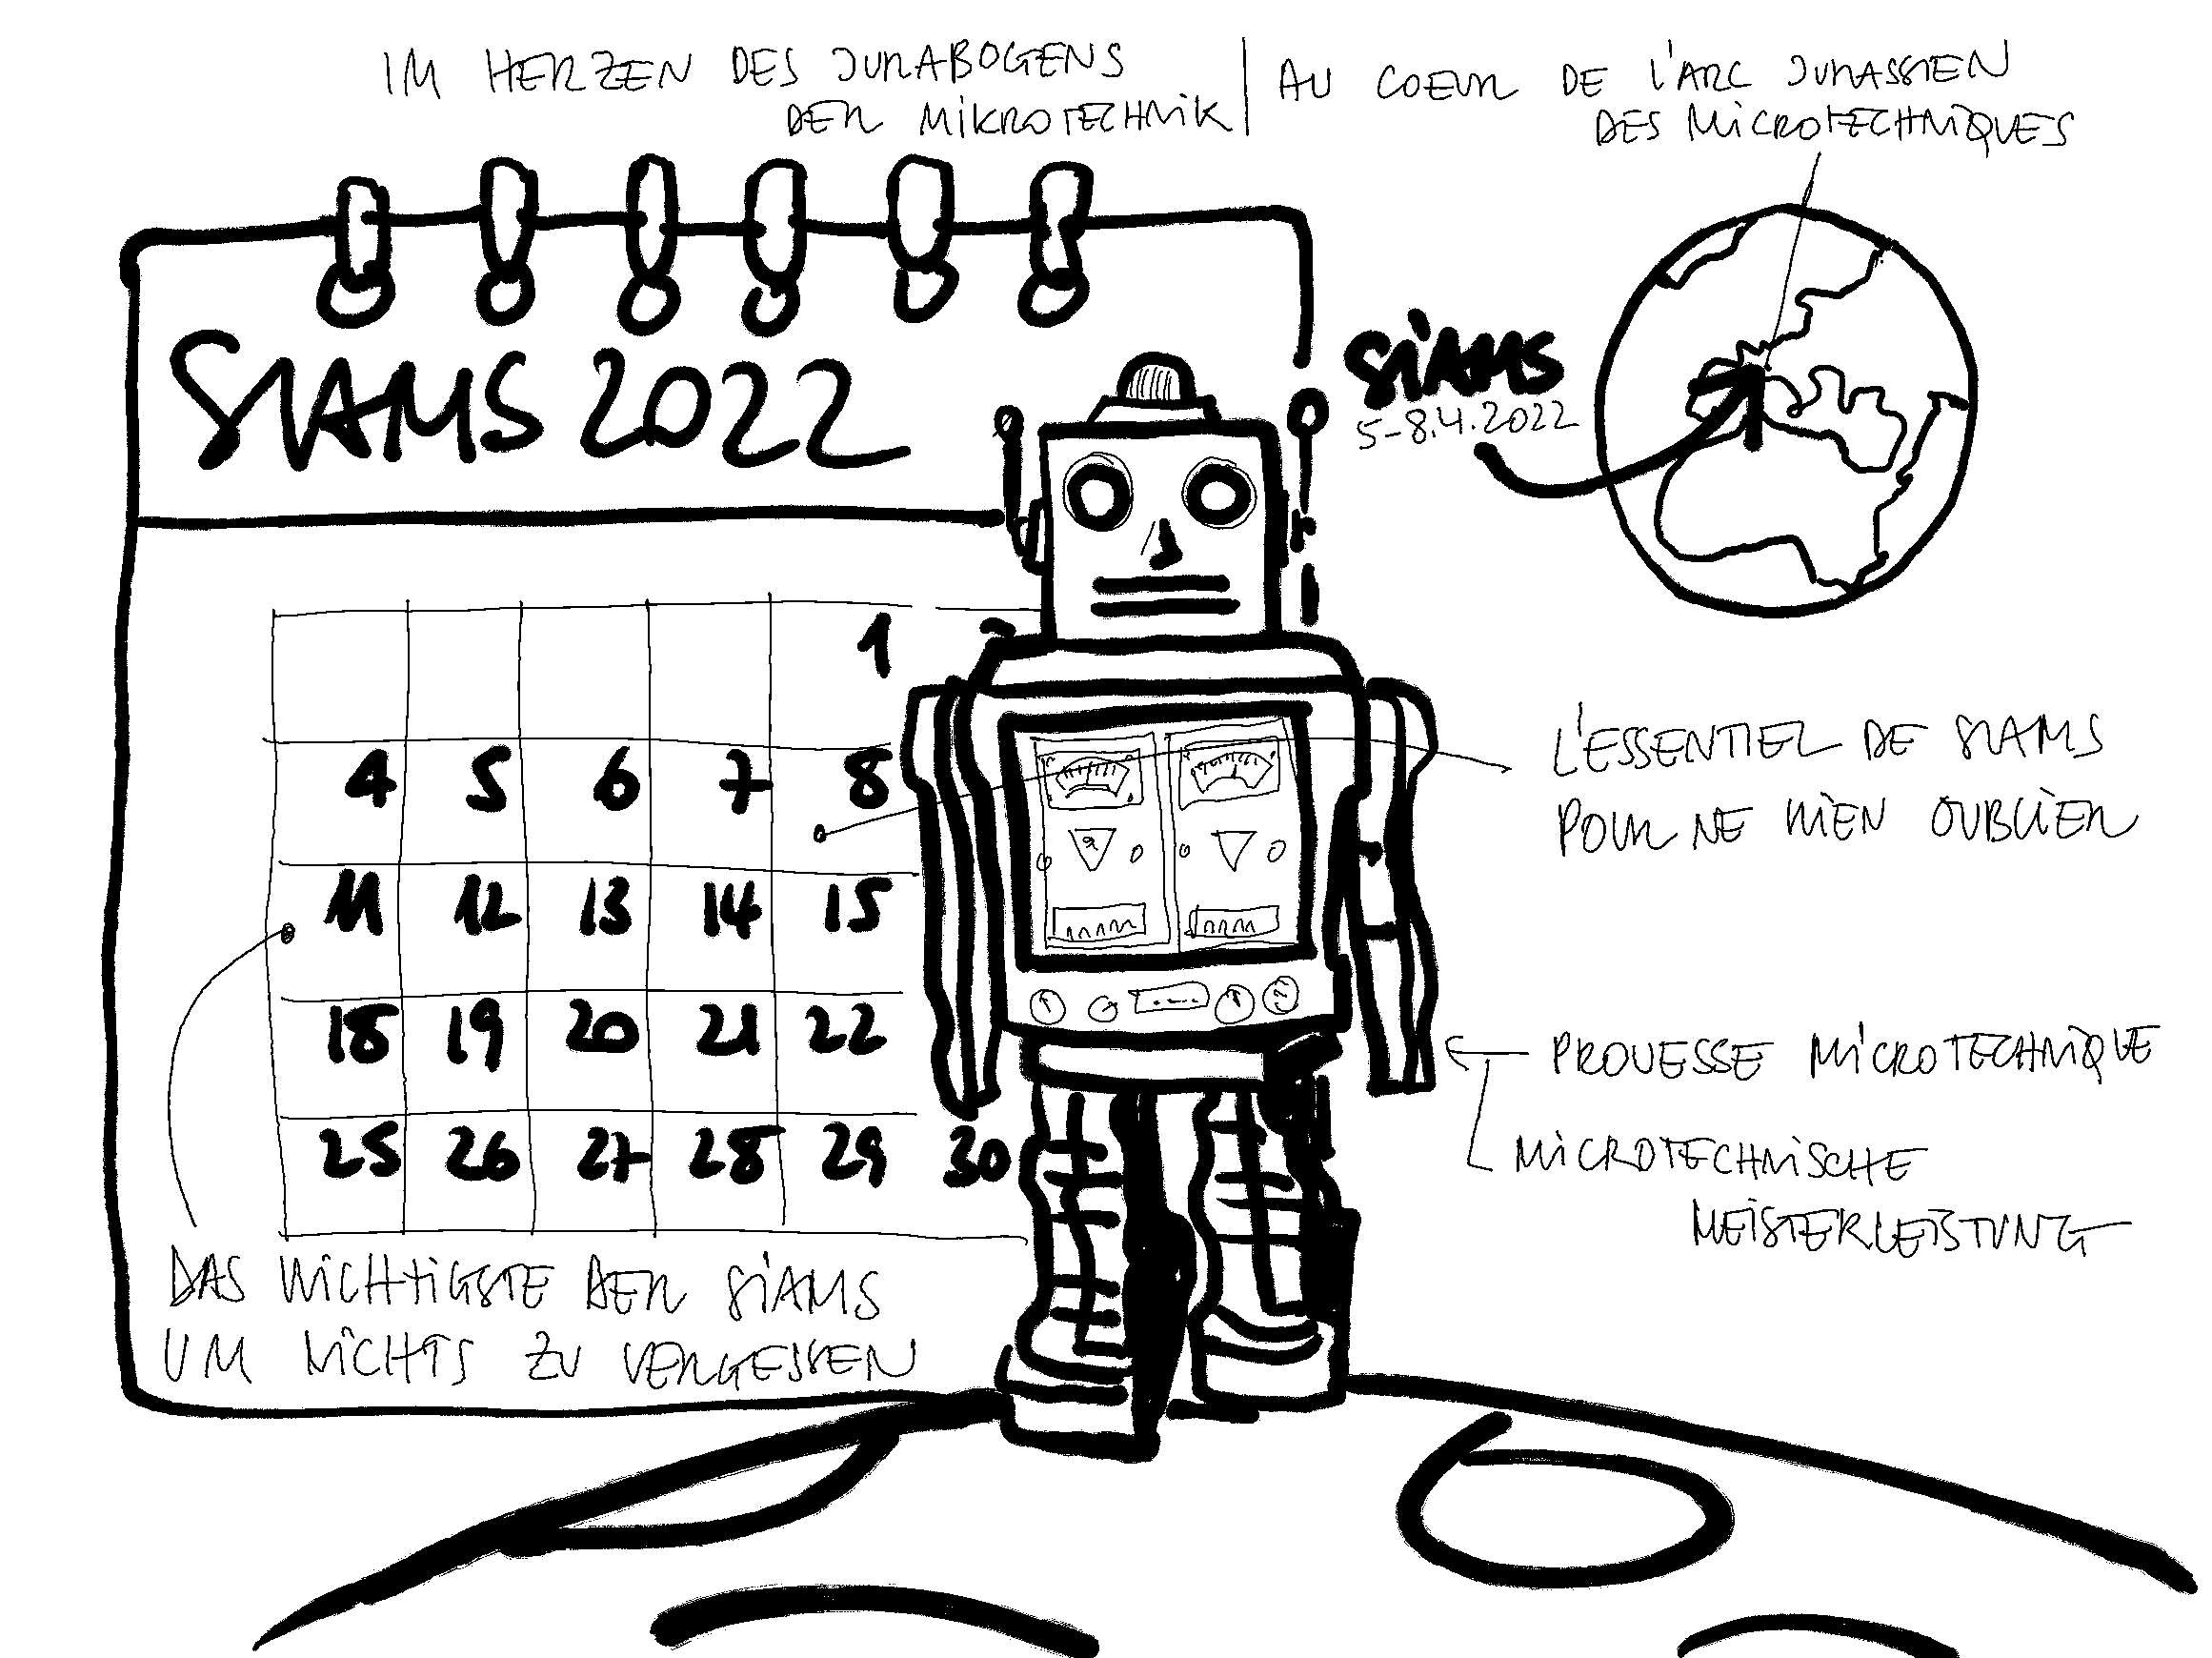 IM HERZEN DES JURABOGENS
DER MIKROTECHNIK
AU COEUR DE L'ARC JURASSIEN
DES MICROTECHNIQUES
SIAMS 2022
SIAMS
5-8.4.2022
1
4 5 6 7 8
11 12 13 14 15
18 19 20 21 22
25 26 27 28 29 30
L'ESSENTIEL DE SIAMS
POUR NE RIEN OUBLIER
PROUESSE MICROTECHNIQUE
MICROTECHNISCHE
MEISTERLEISTUNG
DAS WICHTIGSTE DER SIAMS
UM NICHTS ZU VERGESSEN